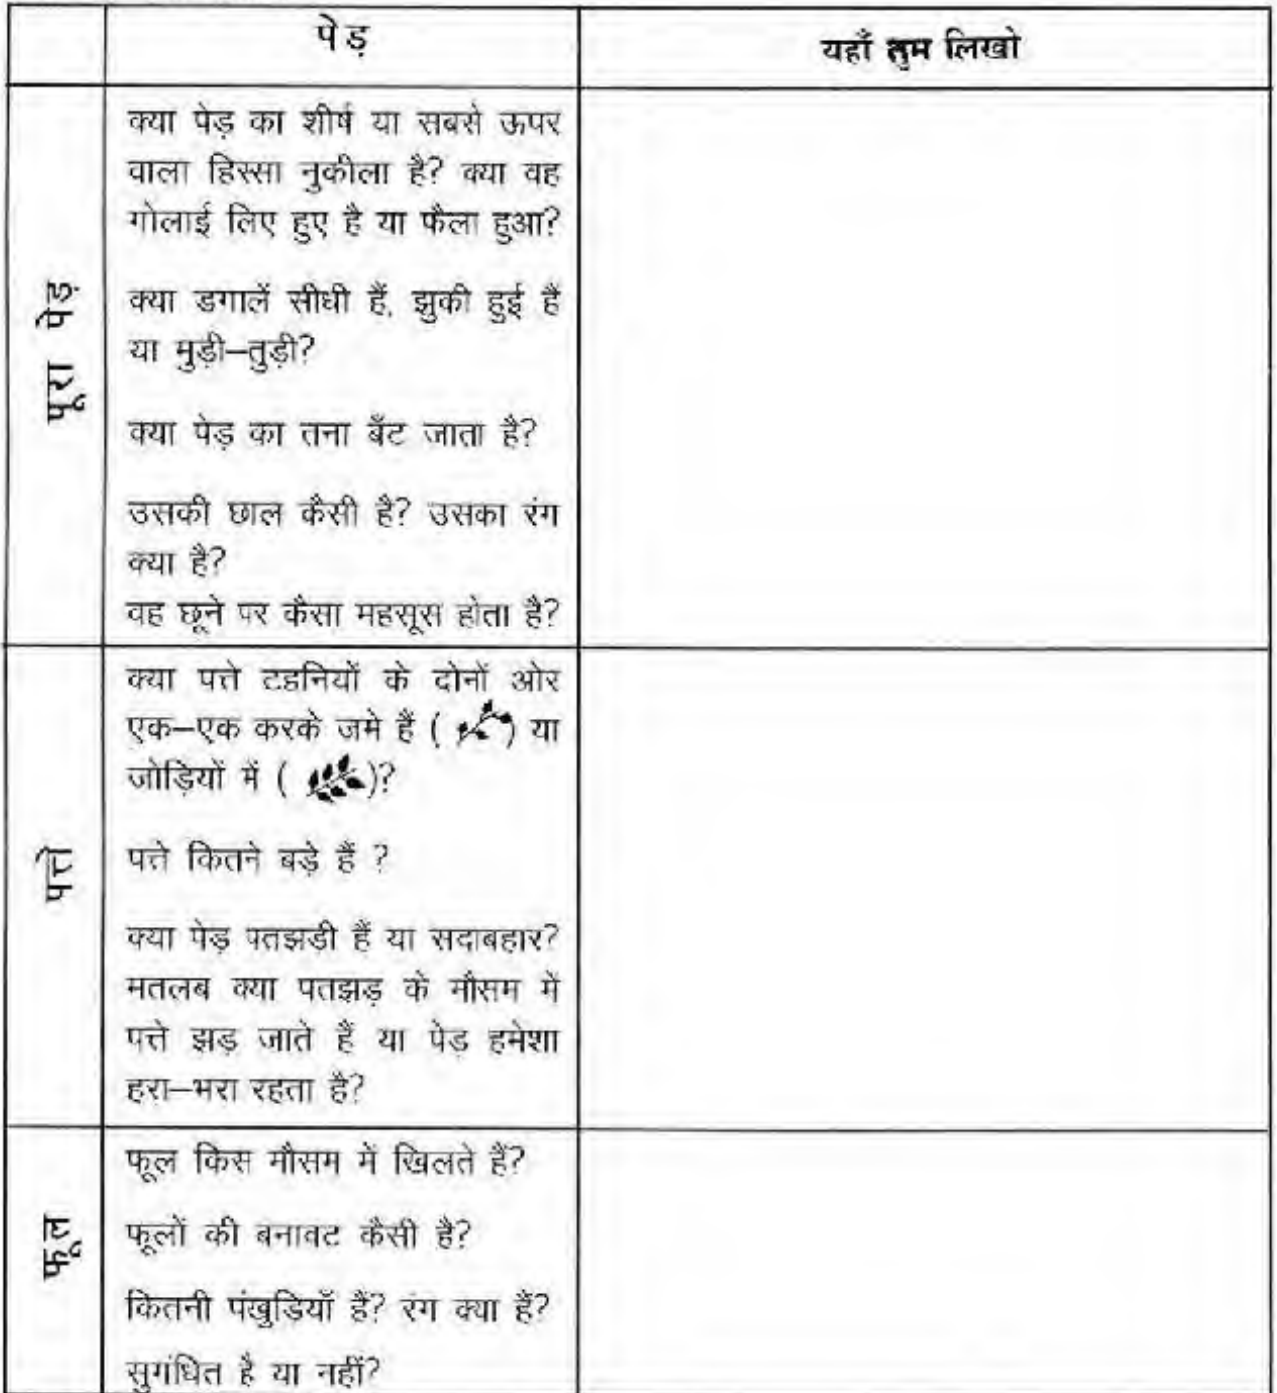 पेड़
यहाँ तुम लिखो
पूरा पेड़
क्या पेड़ का शीर्ष या सबसे ऊपर
वाला हिस्सा नुकीला है? क्या वह
गोलाई लिए हुए है या फैला हुआ?
क्या डगालें सीधी हैं, झुकी हुई हैं
या मुड़ी–तुड़ी?
क्या पेड़ का तना बँट जाता है?
उसकी छाल कैसी है? उसका रंग
क्या है?
वह छूने पर कैसा महसूस होता है?
पत्ते
क्या पत्ते टडनियों के दोनों ओर
एक–एक करके जमे हैं ( ) या
जोड़ियों में ( )?
पत्ते कितने बड़े हैं ?
क्या पेड़ पतझडी हैं या सदाबहार?
मतलब क्या पतझड़ के मौसम में
पत्ते झड़ जाते हैं या पेड़ हमेशा
हरा–भरा रहता है?
फूल
फूल किस मौसम में खिलते हैं?
फूलों की बनावट कैसी है?
कितनी पंखुड़ियाँ हैं? रंग क्या हैं?
सुगंधित है या नहीं?